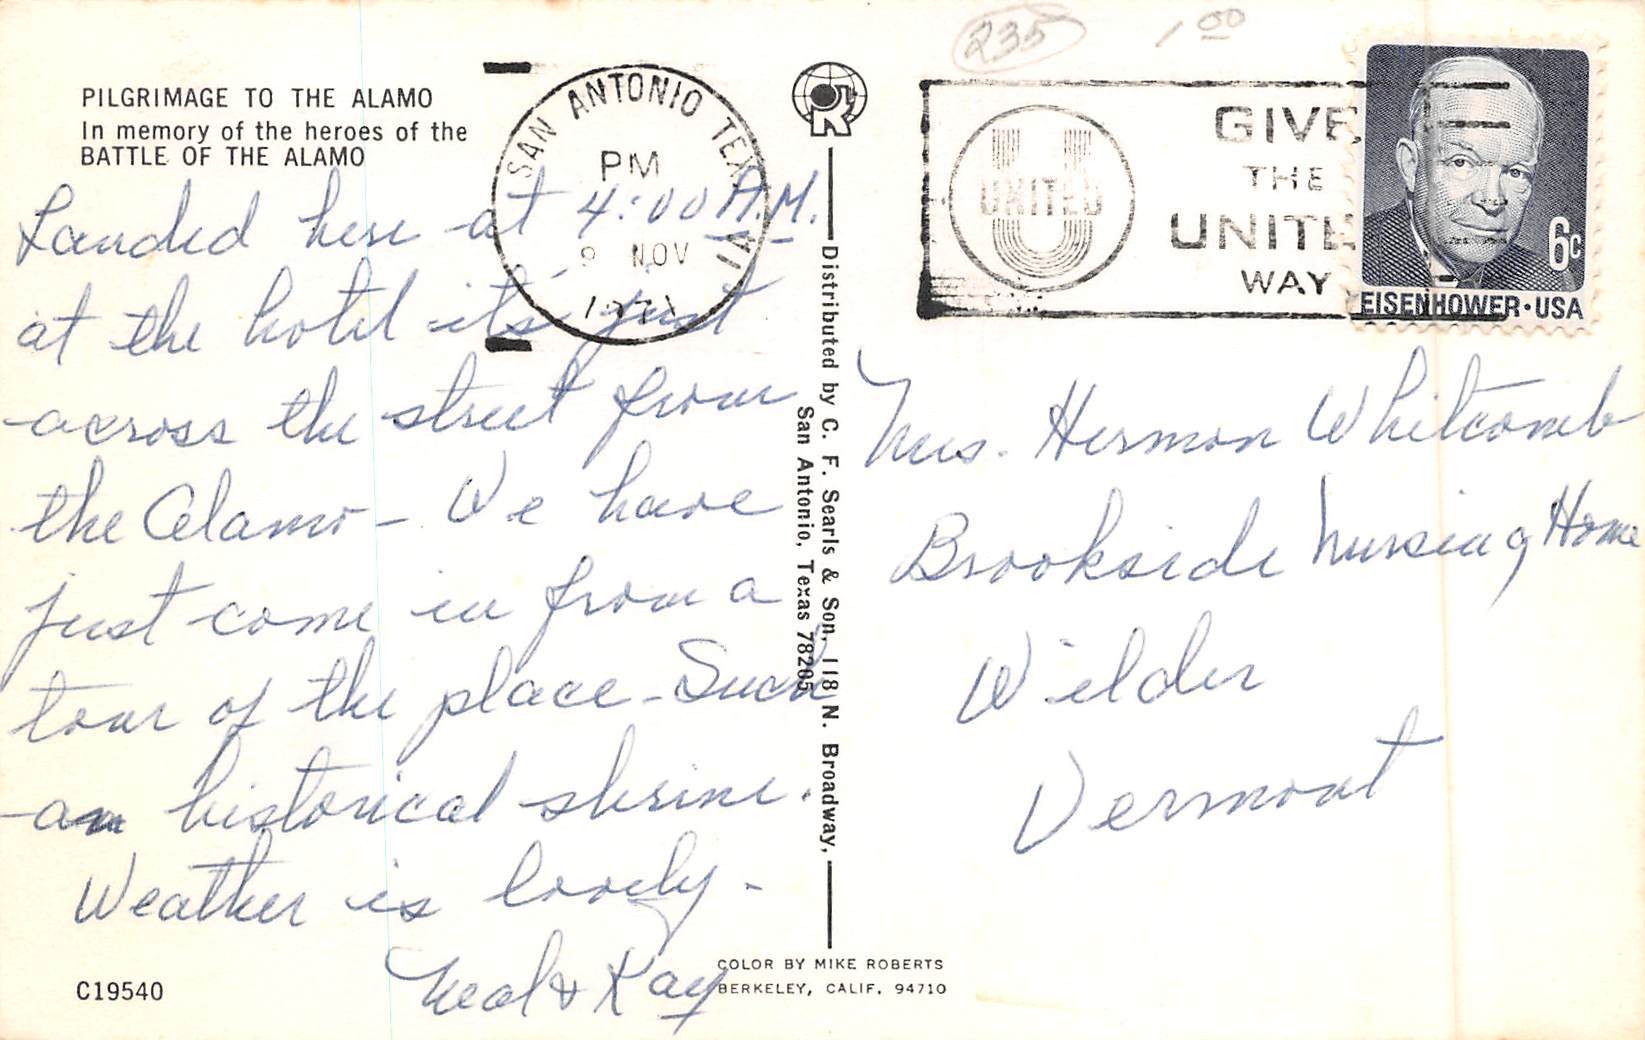 235
1 00
PILGRIMAGE TO THE ALAMO
In memory of the heroes of the
BATTLE OF THE ALAMO
SAN ANTONIO TEX
PM
9 NOV
1971
GIVE
THE
UNITED
UNITE
WAY
6c
EISENHOWER·USA
Landed here at 4:00 A.M.
at the hotel it's just
across the street from
the Alamo - We have
just come in from a
tour of the place - Such
an historical shrine.
Weather is lovely -
Neal & Kay
Distributed by C. F. Searls & Son, 118 N. Broadway,
San Antonio, Texas 78205
Mrs. Herman Whitcomb
Brookside Nursing Home
Wilder
Vermont
C19540
COLOR BY MIKE ROBERTS
BERKELEY, CALIF. 94710